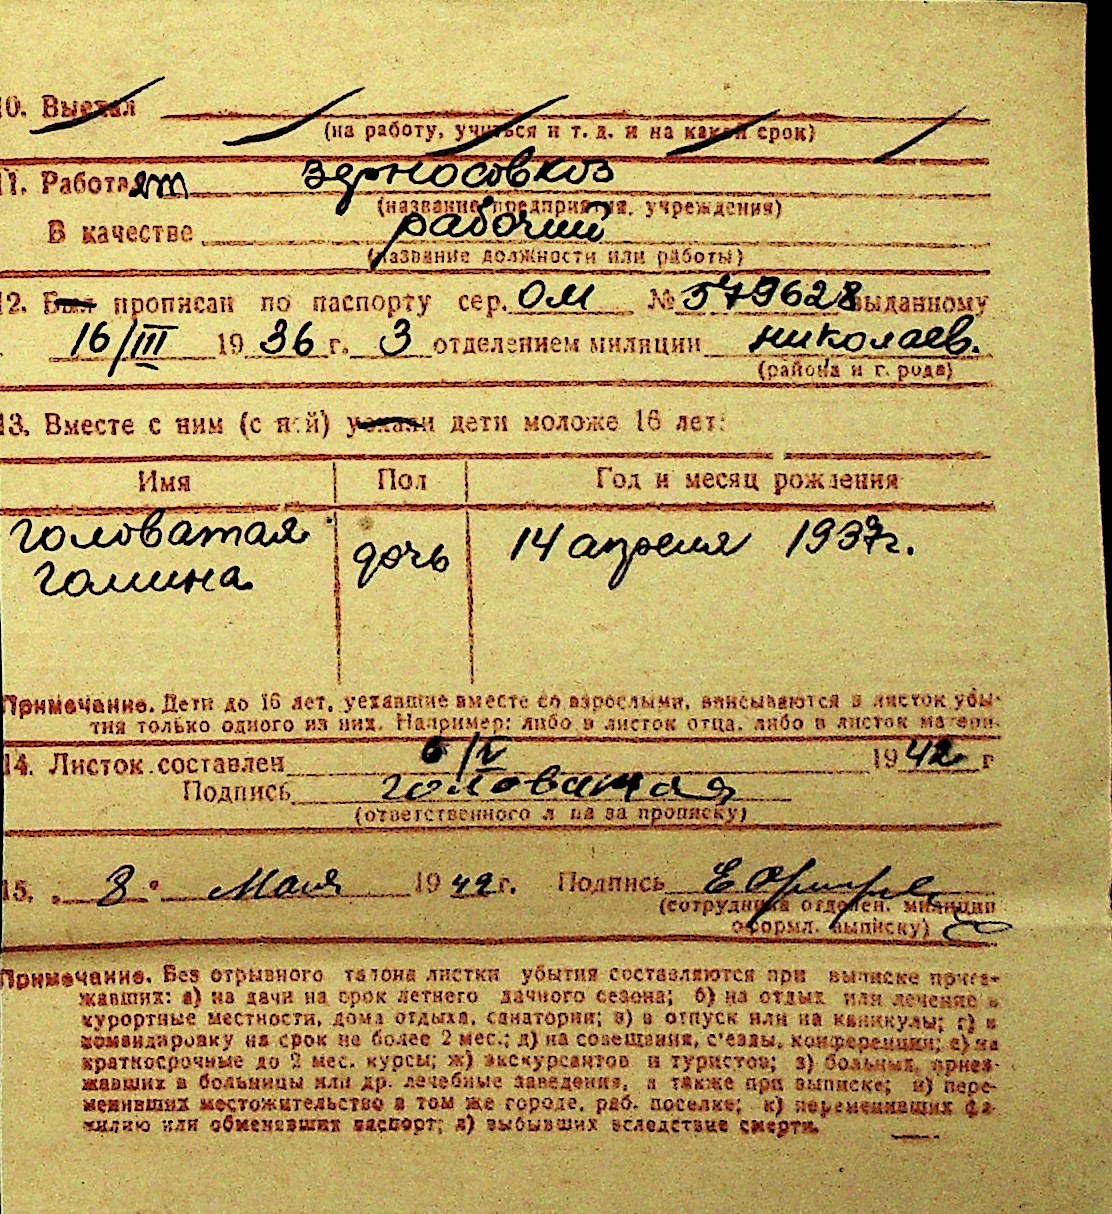 10. Выехал
(на работу, учиться и т. д. и на какой срок)
11. Работает зерносовхоз
(название предприятия, учреждения)
В качестве рабочий
(название должности или работы)
12. Был прописан по паспорту сер. ОМ № 579628 выданному
16/III 1936 г. 3 отделением милиции николаев.
(района и города)
13. Вместе с ним (с ней) уехали дети моложе 16 лет:
Имя Пол Год и месяц рождения
Головатая дочь 14 апреля 1937г.
Галина
Примечание. Дети до 16 лет, уехавшие вместе со взрослыми, вписываются в листок убы-
тия только одного из них. Например: либо в листок отца, либо в листок матери.
14. Листок составлен 6/V 1942 г
Подпись Головатая
(ответственного лица за прописку)
15. „8" Мая 1942г. Подпись
(сотрудника отделен. милиции
оформл. выписку)
Примечание. Без отрывного талона листки убытия составляются при выписке приез-
жавших: а) на дачи на срок летнего дачного сезона; б) на отдых или лечение в
курортные местности, дома отдыха, санатории; в) в отпуск или на каникулы; г) в
командировку на срок не более 2 мес.; д) на совещания, с'езды, конференции; е) на
краткосрочные до 2 мес. курсы; ж) экскурсантов и туристов; з) больных, приез-
жавших в больницы или др. лечебные заведения, а также при выписке; и) пере-
менивших местожительство в том же городе, раб. поселке; к) переменивших фа-
милию или обменявших паспорт; л) выбывших вследствие смерти.